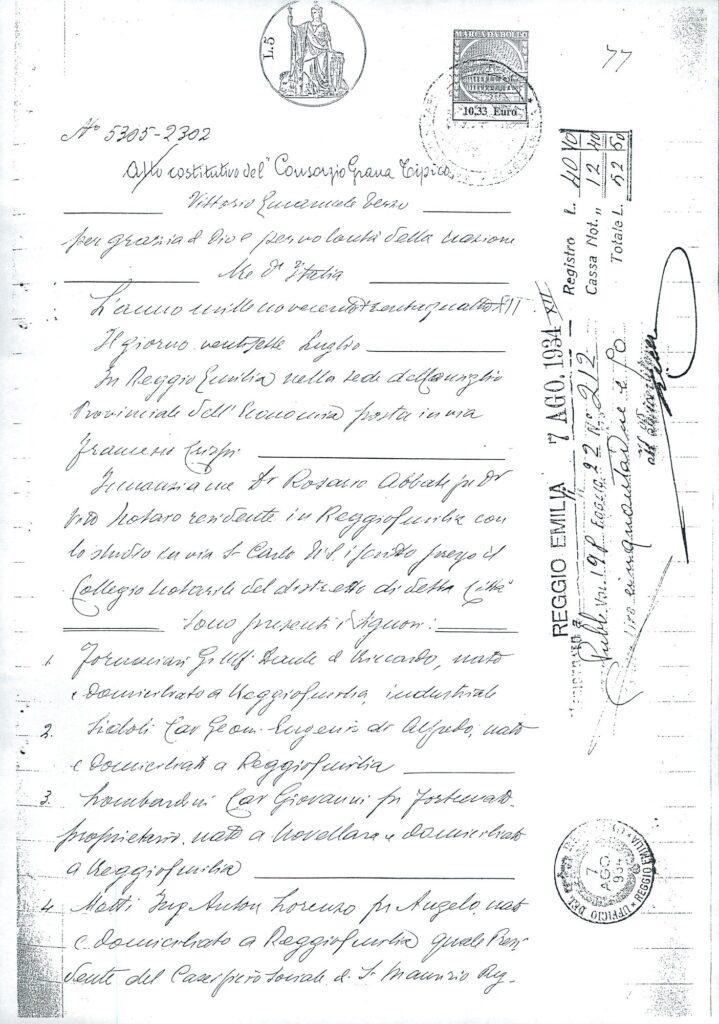 L.5
MARCA DA BOLLO
10,33 Euro
77
N° 5305-2302
Atto costitutivo del "Consorzio Grana Tipico"
Vittorio Emanuele Terzo
per grazia di Dio e per volontà della nazione
Re d'Italia
L'anno millenovecentotrentaquattro XII
Il giorno ventisette Luglio
In Reggio Emilia nella sede del Consiglio
Provinciale dell'Economia posta in via
Francesco Crispi
Innanzi a me Dr Rosario Abbate fu Dr
Vito Notaro residente in Reggio Emilia con
lo studio in via S. Carlo N. iscritto presso il
Collegio notarile del distretto di detta Città
Sono presenti i Signori:
1. Dante di Riccardo, nato
e domiciliato a Reggio Emilia, industriale
2. Sidoli Cav Geom. Eugenio di Alfredo, nato
e domiciliato a Reggio Emilia
3. Lombardini Cav Giovanni fu Fortunato
proprietario, nato a Novellara e domiciliato
a Reggio Emilia
4. Motti Ing Anton Lorenzo fu Angelo, nato
e domiciliato a Reggio Emilia quale Presi-
dente del Caseificio Sociale di S. Maurizio Reg-
REGGIO EMILIA 7 AGO. 1934 XII
Pubbl. Vol. 198 Foglio 22 N° 212
lire cinquantadue e 50
Registro L. 40 10
Cassa Not. " 12 40
Totale L. 52 50
UFFICIO DEL REGISTRO * REGGIO EMILIA *
7
AGO
1934